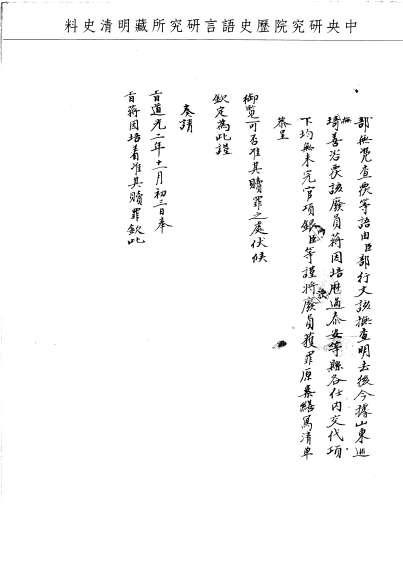 中央研究院歷史語言研究所藏明清史料
部無凭查覈等語由臣部行文該撫查明去後今據山東巡
撫琦善咨覆該廢員蔣因培歷過泰安等縣各任內交代項
下均無未完官項銀臣等謹將廢員獲罪原案繕寫清單
恭呈
御覽可否准其贖罪之處伏候
欽定爲此謹
奏請
旨道光二年十一月初三日奉
旨蔣因培着准其贖罪欽此